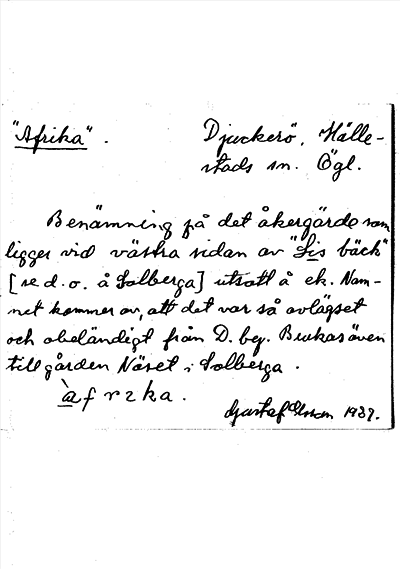 "Afrika". Djuckerö, Hälle-
stads sn. Ögl.
Benämning på det åkergärde som
ligger vid västra sidan av "Lis bäck"
[se d. o. å Solberga] utsatt å ek. Nam-
net kommer av, att det var så avlägset
och obeländigt från D. by. Brukas även
till gården Näset i Solberga.
àfrika.
Gustaf Olsson 1937.